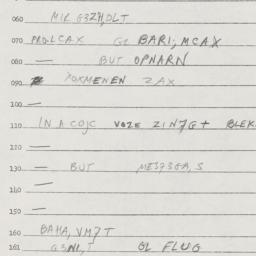 060 MIR G3ZH,DLT
070 PROLCAX GL BARI; MCAX
080 — BUT OPNARN
090 POKMENEN ZAX
100 —
110 IN A COJC VOZE ZIN7G+ BLEK
120 —
130 — BUT ME373GA, S
140 —
150 —
160 BAHA, VM7T
161 G3NI,T GL FLUG